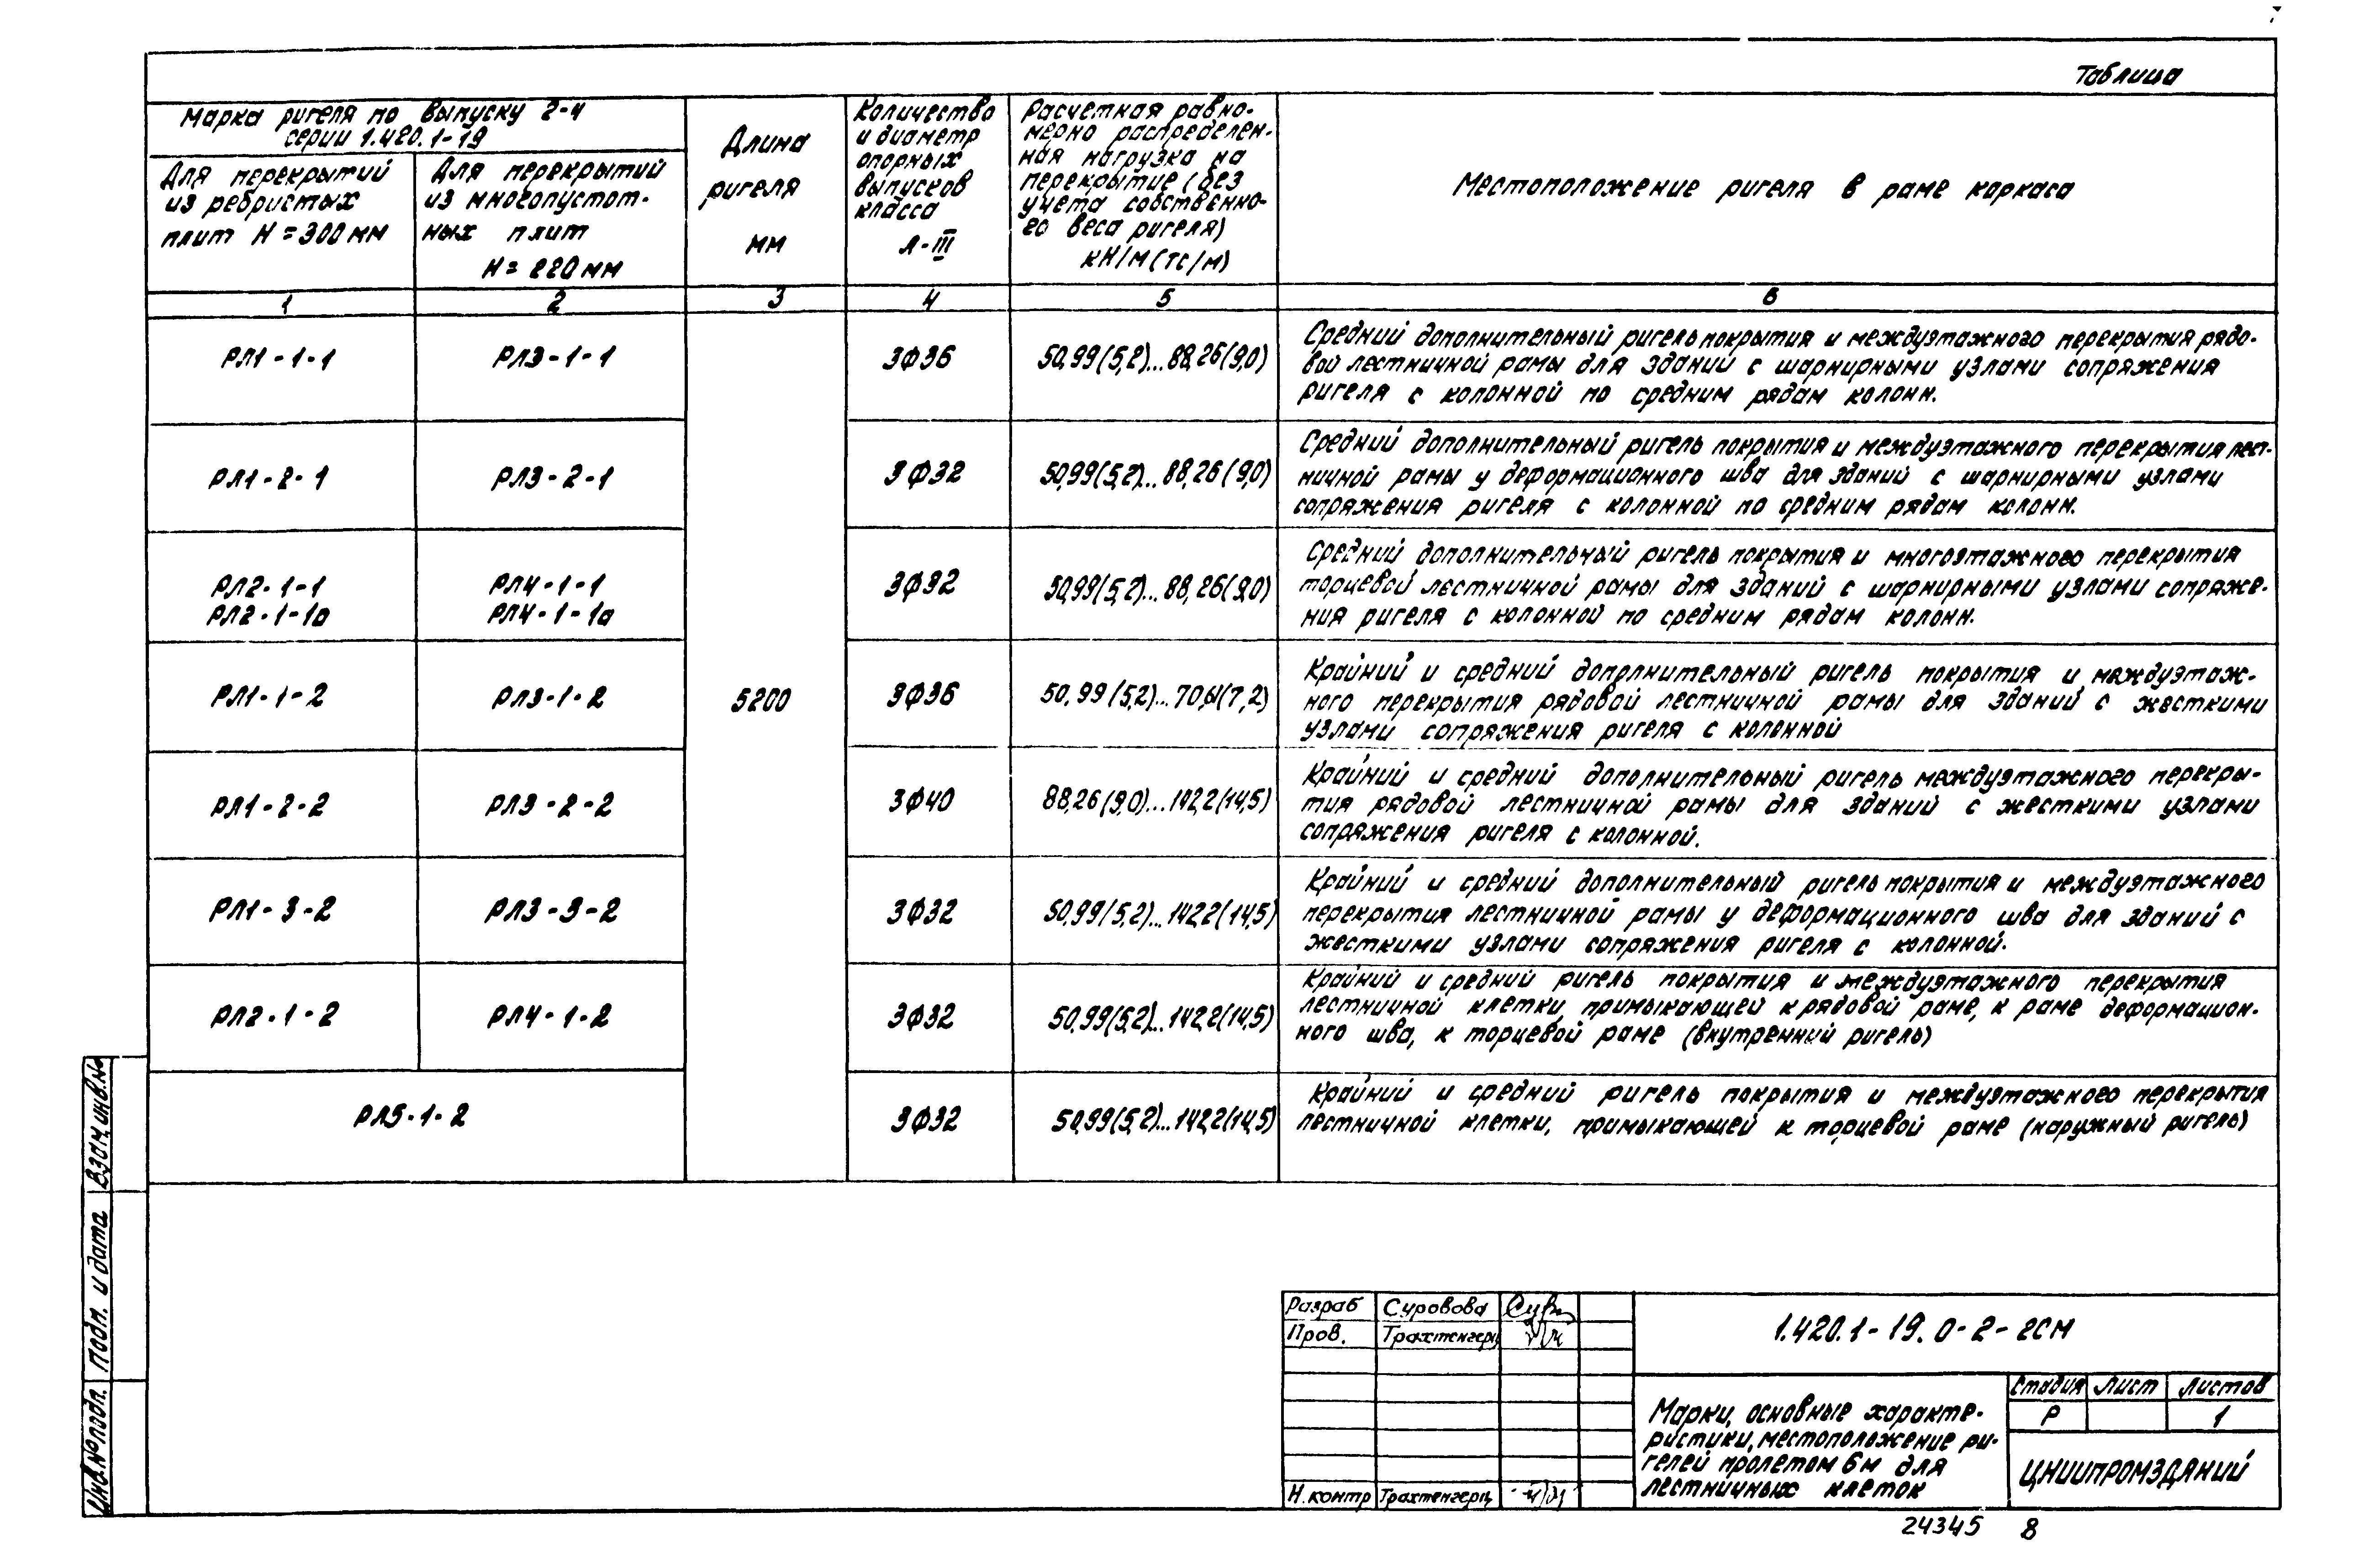 Таблица
Марка ригеля по выпуску 2-4
серии 1.420.1-19
Для перекрытий
из ребристых
плит Н=300мм
Для перекрытий
из многопустот-
ных плит
Н=220мм
Длина
ригеля
мм
Количество
и диаметр
опорных
выпусков
класса
А-III
Расчетная равно-
мерно распределен-
ная нагрузка на
перекрытие (без
учета собственно-
го веса ригеля)
кН/м(тс/м)
Местоположение ригеля в раме каркаса
1 2 3 4 5 6
РЛ1-1-1 РЛ3-1-1 3Ф36 50,99(5,2)...88,26(9,0)
Средний дополнительный ригель покрытия и междуэтажного перекрытия рядо-
вой лестничной рамы для зданий с шарнирными узлами сопряжения
ригеля с колонной по средним рядам колонн.
РЛ1-2-1 РЛ3-2-1 3Ф32 50,99(5,2)...88,26(9,0)
Средний дополнительный ригель покрытия и междуэтажного перекрытия лест-
ничной рамы у деформационного шва для зданий с шарнирными узлами
сопряжения ригеля с колонной по средним рядам колонн.
РЛ2-1-1 РЛ4-1-1
РЛ2-1-1а РЛ4-1-1а
3Ф32 50,99(5,2)...88,26(9,0)
Средний дополнительный ригель покрытия и многоэтажного перекрытия
торцевой лестничной рамы для зданий с шарнирными узлами сопряже-
ния ригеля с колонной по средним рядам колонн.
РЛ1-1-2 РЛ3-1-2 5200 3Ф36 50,99(5,2)...70,61(7,2)
Крайний и средний дополнительный ригель покрытия и междуэтаж-
ного перекрытия рядовой лестничной рамы для зданий с жесткими
узлами сопряжения ригеля с колонной
РЛ1-2-2 РЛ3-2-2 3Ф40 88,26(9,0)...142,2(14,5)
Крайний и средний дополнительный ригель междуэтажного перекры-
тия рядовой лестничной рамы для зданий с жесткими узлами
сопряжения ригеля с колонной.
РЛ1-3-2 РЛ3-3-2 3Ф32 50,99(5,2)...142,2(14,5)
Крайний и средний дополнительный ригель покрытия и междуэтажного
перекрытия лестничной рамы у деформационного шва для зданий с
жесткими узлами сопряжения ригеля с колонной.
РЛ2-1-2 РЛ4-1-2 3Ф32 50,99(5,2)...142,2(14,5)
Крайний и средний ригель покрытия и междуэтажного перекрытия
лестничной клетки, примыкающей к рядовой раме, к раме деформацион-
ного шва, к торцевой раме (внутренний ригель)
РЛ5-1-2 3Ф32 50,99(5,2)...142,2(14,5)
Крайний и средний ригель покрытия и междуэтажного перекрытия
лестничной клетки, примыкающей к торцевой раме (наружный ригель)
Взам.инв.№
Подп. и дата
Инв.№подл.
Разраб Суровова
Пров. Трахтенгерц
Н.контр Трахтенгерц
1.420.1-19.0-2-2СМ
Марки, основные характе-
ристики, местоположение ри-
гелей пролетом 6м для
лестничных клеток
Стадия Лист Листов
Р 1
ЦНИИПРОМЗДАНИЙ
24345 8